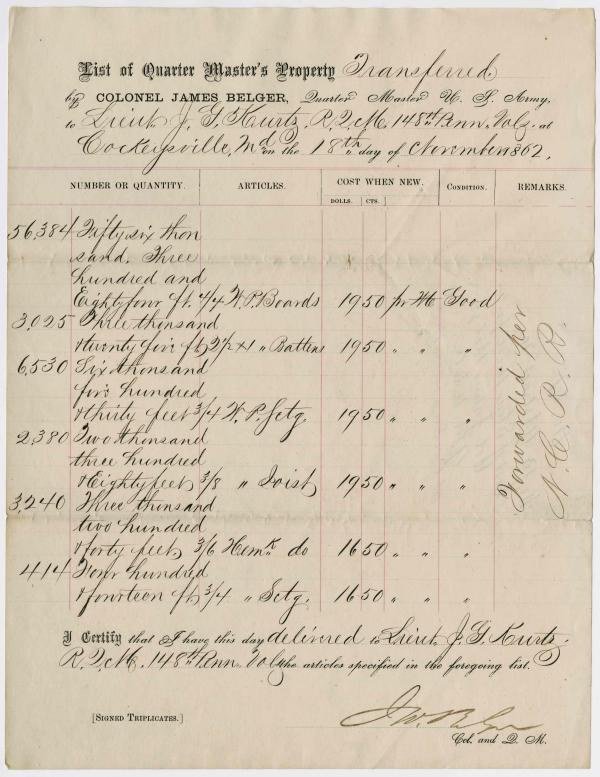 List of Quarter Master's Property Transferred
by COLONEL JAMES BELGER, Quarter Master U. S. Army,
to Lieut. J. G. Kurtz, R. Q. M. 148th Penn. Vols. at
Cockeysville, Md on the 18th day of November 1862.
NUMBER OR QUANTITY. ARTICLES. COST WHEN NEW. CONDITION. REMARKS.
DOLLS. CTS.
56,384 Fifty six thou
sand. Three
hundred and
Eighty four ft. 4/4 W. P. Boards 19 50 pr M Good
3,025 Three thousand
& twenty five ft 2 1/2 x 1 " Battens 19 50 " " "
6,530 Six thousand
five hundred
& thirty feet 3/4 W. P. Sctg. 19 50 " " "
2,380 Two thousand
three hundred
& Eighty feet 3/8 " Joist 19 50 " " "
3,240 Three thousand
two hundred
& forty feet 3/6 Hemk do 16 50 " " "
414 Four hundred
& fourteen ft 3/4 " Sctg. 16 50 " " "
Forwarded per
N. C. R. R.
I Certify that I have this day delivered to Lieut. J. G. Kurtz,
R. Q. M. 148th Penn. Vols the articles specified in the foregoing list.
[SIGNED TRIPLICATES.]
Col. and Q. M.